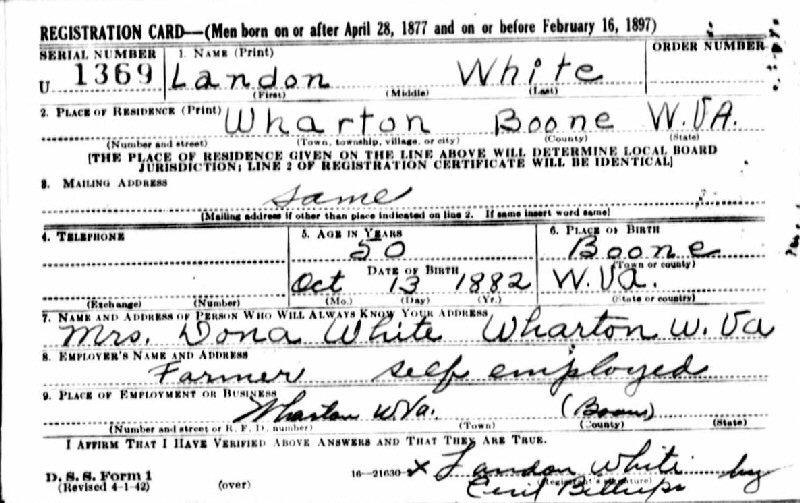 REGISTRATION CARD—(Men born on or after April 28, 1877 and on or before February 16, 1897)
SERIAL NUMBER 1. NAME (Print) ORDER NUMBER
U 1369 Landon White
(First) (Middle) (Last)
2. PLACE OF RESIDENCE (Print)
Wharton Boone W.VA.
(Number and street) (Town, township, village, or city) (County) (State)
[THE PLACE OF RESIDENCE GIVEN ON THE LINE ABOVE WILL DETERMINE LOCAL BOARD
JURISDICTION; LINE 2 OF REGISTRATION CERTIFICATE WILL BE IDENTICAL]
3. MAILING ADDRESS
Same
(Mailing address if other than place indicated on line 2. If same insert word same)
4. TELEPHONE 5. AGE IN YEARS 6. PLACE OF BIRTH
50 Boone
(Town or county)
DATE OF BIRTH
Oct 13 1882 W.Va.
(Exchange) (Number) (Mo.) (Day) (Yr.) (State or country)
7. NAME AND ADDRESS OF PERSON WHO WILL ALWAYS KNOW YOUR ADDRESS
Mrs. Dona White Wharton W. Va
8. EMPLOYER'S NAME AND ADDRESS
Farmer self employed
9. PLACE OF EMPLOYMENT OR BUSINESS
Wharton W.Va. (Boone)
(Number and street or R. F. D. number) (Town) (County) (State)
I AFFIRM THAT I HAVE VERIFIED ABOVE ANSWERS AND THAT THEY ARE TRUE.
D. S. S. Form 1 16—21630-2 X Landon White by
(Revised 4-1-42) (over) (Registrant's signature)
Cecil